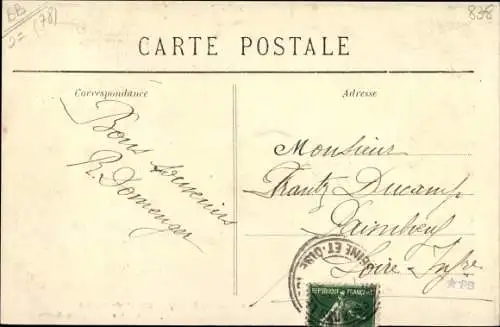 BB
(78)
838
CARTE POSTALE
Correspondance
Adresse
Bons souvenirs
R. Domenger
Monsieur
Frantz Ducamp
Paimbœuf
Loire Infre
SEINE-ET-OISE
REPUBLIQUE FRANÇAISE